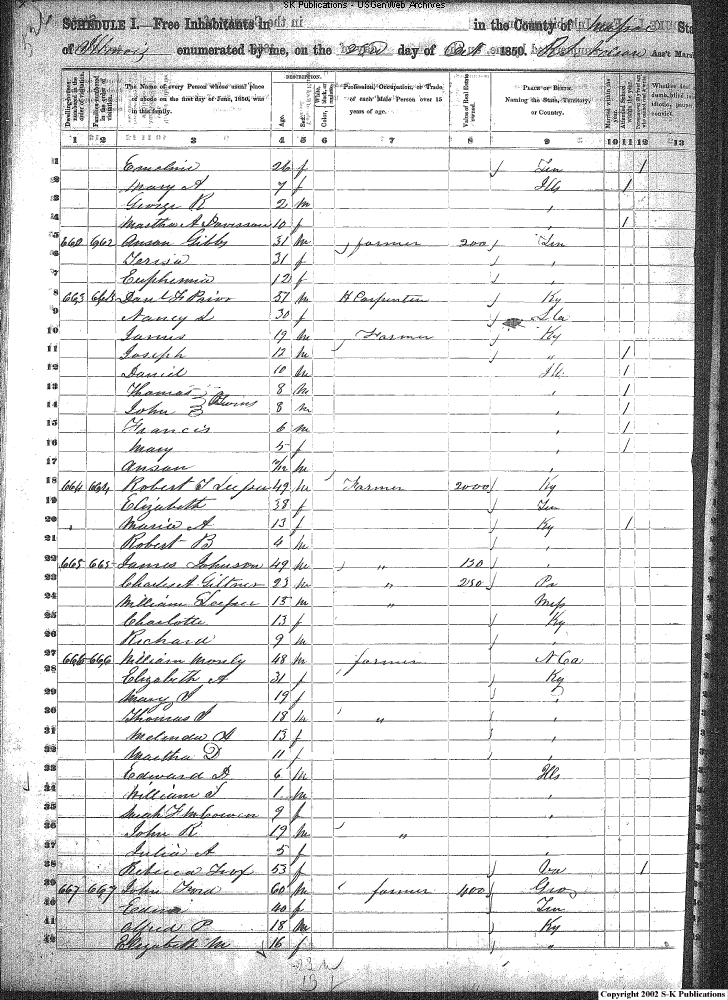 SK Publications - USGenWeb Archives
SCHEDULE I.—Free Inhabitants in in the County of Massac State
of Illinois enumerated by me, on the 23d day of Oct 1850. Ass't Mars
Dwelling-houses numbered in the order of visitation.
Families numbered in the order of visitation.
The Name of every Person whose usual place of abode on the first day of June, 1850, was in this family.
DESCRIPTION.
Age.
Sex.
White, black, or mulatto.
Color
Profession, Occupation, or Trade of each Male Person over 15 years of age.
Value of Real Estate owned.
PLACE OF BIRTH. Naming the State, Territory, or Country.
Married within the year.
Attended School within the year.
Whether deaf
1 2 3 4 5 6 7 8 9 10 11 12 13
1 Emeline 26 f Ten /
2 Mary A 7 f Ills /
3 George R 2 m "
4 Martha A Davisson 10 f " /
5 662 662 Anson Gibbs 31 m farmer 200 Ten
6 Teresa 31 f "
7 Euphemia 12 f "
8 663 663 Danl F Prior 57 m H Carpenter Ky
9 Nancy L 30 f S Ca
10 James 19 m Farmer Ky
11 Joseph 12 m " /
12 Daniel 10 m Ill /
13 Thomas 8 m " /
14 John } Twins 8 m " /
15 Francis 6 m " /
16 Mary 5 f " /
17 Anson m
18 664 664 Robert T Leeper 49 m Farmer 2000 Ky
19 Elizabeth 38 f Ten
20 Maria A 13 f Ky /
21 Robert B 4 m "
22 665 665 James Johnson 49 m " 150 "
23 Charles A Giltner 23 m " 250 Pa
24 William Leeper 15 m " Miss
25 Charlotte 13 f Ky
26 Richard 9 m
27 666 666 William Mosely 48 m farmer N Ca
28 Elizabeth A 31 f Ky
29 Mary J 19 f "
30 Thomas J 18 m " "
31 Melinda 13 f "
32 Martha D 11 f "
33 Edward D 6 m Ills
34 William T 1 m
35 McCowen 9 f
36 John R 19 m " "
37 Julia A 5 f
38 Rebecca 53 f Va /
39 667 667 John Ford 60 m farmer 400 Geo
40 40 f Ten
41 Alfred P 18 m Ky
42 Elizabeth M 16 f "
Copyright 2002 S-K Publications